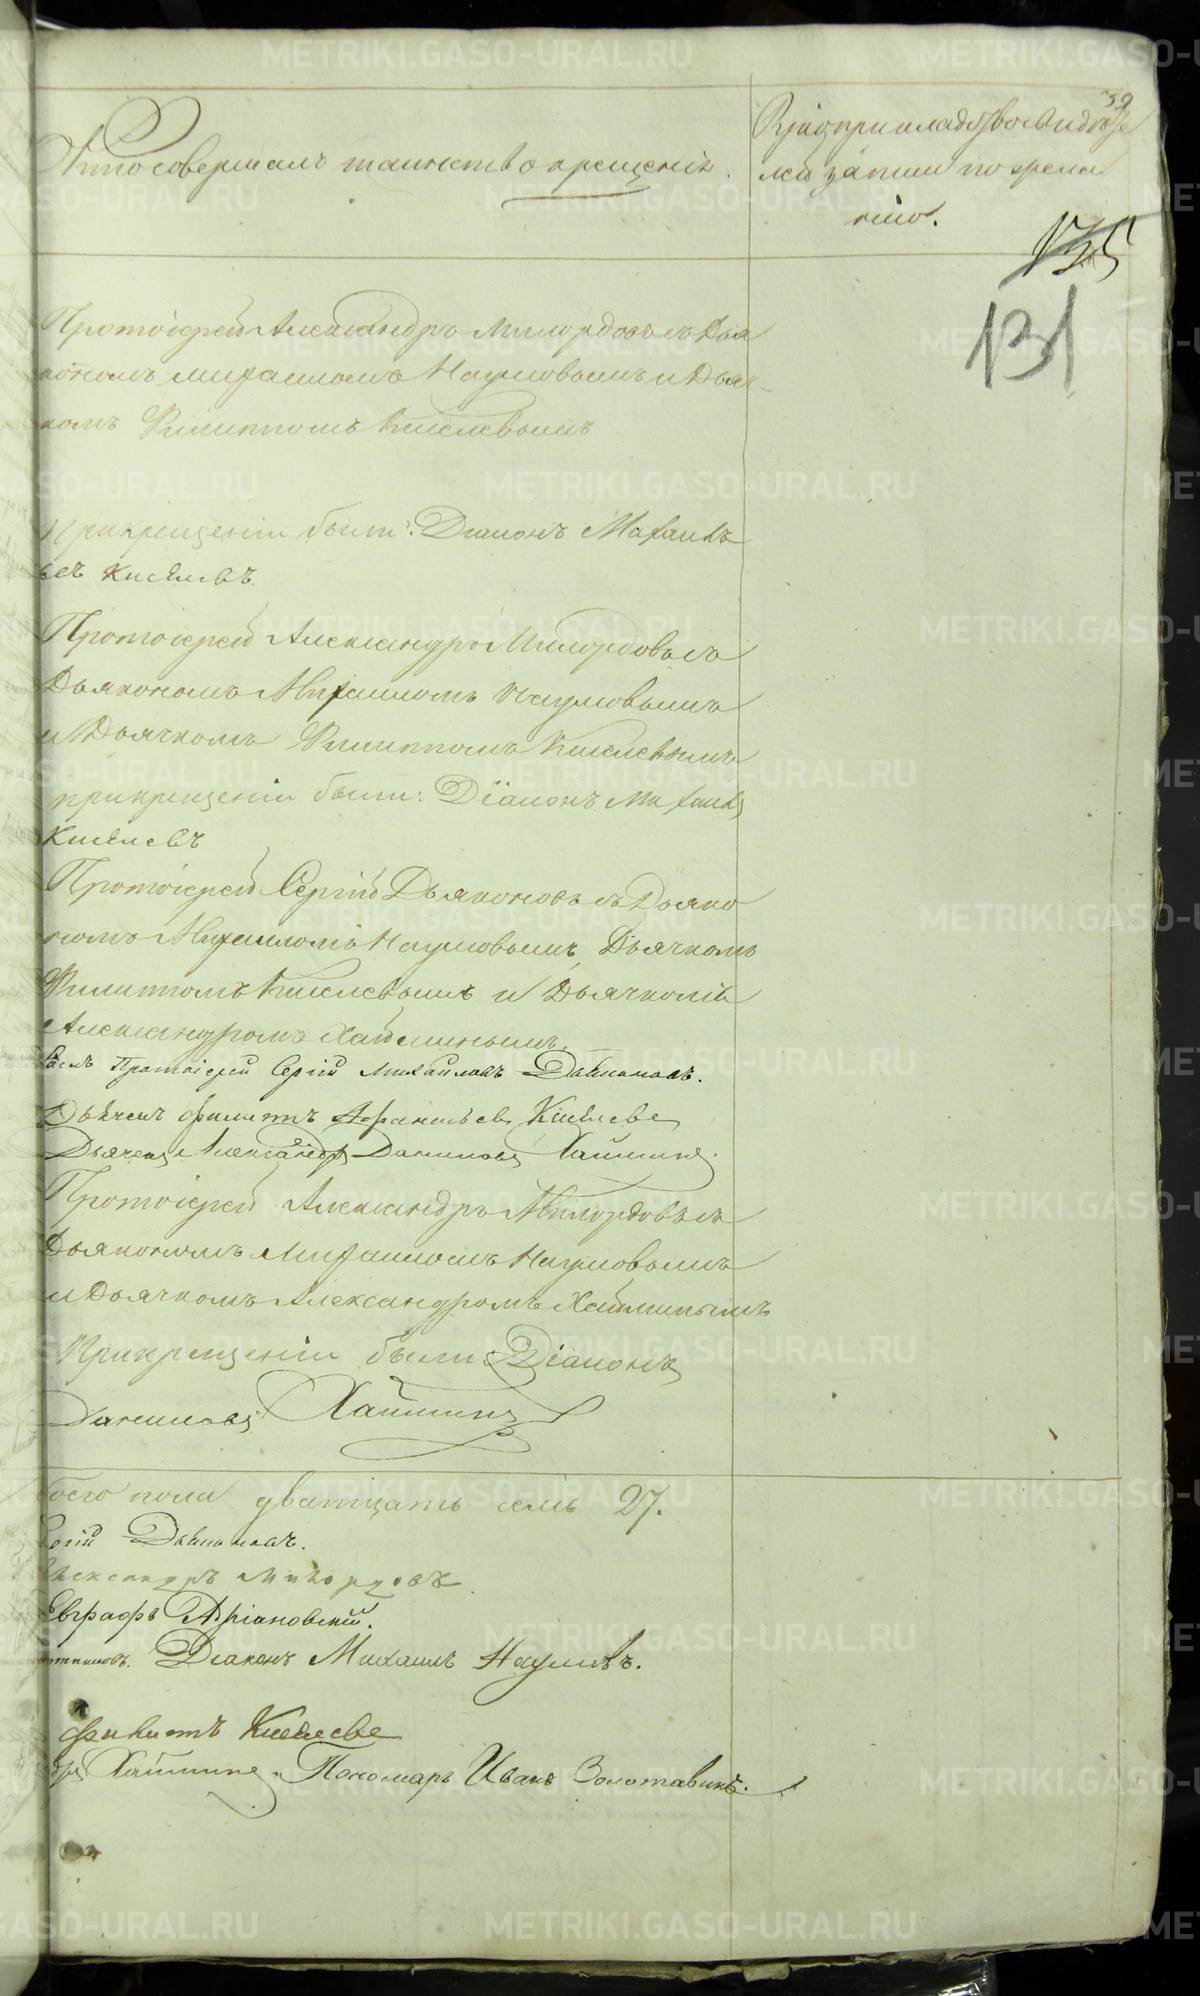 39
Кто совершалъ таинство крещенія.
Рукоприкладство свидѣте
лей записи по крещѣ
нію.
135
131
Протоіерей Александръ Милордовъ съ Дья
кономъ Михаиломъ Наумовымъ и Дьяч-
комъ Филиппомъ Киселевымъ
При крещеніи были: Діаконъ Михаилъ
Киселевъ
Протоіерей Александръ Милордовъ съ
Дьякономъ Михаиломъ Наумовымъ
и Дьячкомъ Филиппомъ Киселевымъ
при крещеніи были: Діаконъ Михаилъ
Киселевъ
Протоіерей Сергій Дьяконовъ съ Дьяко
номъ Михаиломъ Наумовымъ, Дьячкомъ
Филиппомъ Киселевымъ и Дьячкомъ
Александромъ Хайминымъ.
Протоіерей Сергій Михайловъ Дьяконовъ.
Дьячекъ Филиппъ Киселевъ
Дьячекъ Александръ Даниловъ Хайминъ.
Протоіерей Александръ Милордовъ съ
Дьякономъ Михаиломъ Наумовымъ
и Дьячкомъ Александромъ Хайминымъ
При крещеніи были Діаконъ
Даниловъ Хайминъ
боего пола дватцать семь 27.
ргій Дьяконовъ.
лександръ Милордовъ.
Евграфъ Адріановскій.
Діаконъ Михаилъ Наумовъ.
Филиппъ Киселевъ
дръ Хайминъ, Пономарь Иванъ Золотавинъ.
METRIKI.GASO-URAL.RU